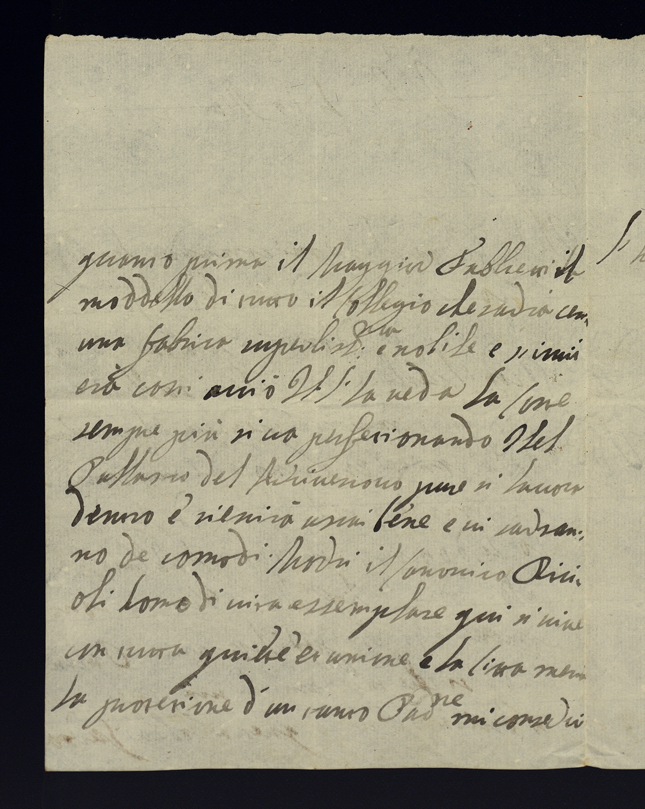 quanto prima il Maggior Paslieri il
moddello di tutto il Collegio che sarà cer:
una fabrica superbiss:ma e nobile e si inui
erà cosi acciò V.S. la veda la Corte
sempre più si va perfecionando Nel
Pallazzo del pure si lavora
dentro e riescirà assai bene e vi sadran:
no de comodi. Morsi il Canonico Rici:
oli homo di vita essemplare qui si vive
con tutta quiete et unione e la Citta
la protezione d'un tanto Padrne mi conseDi